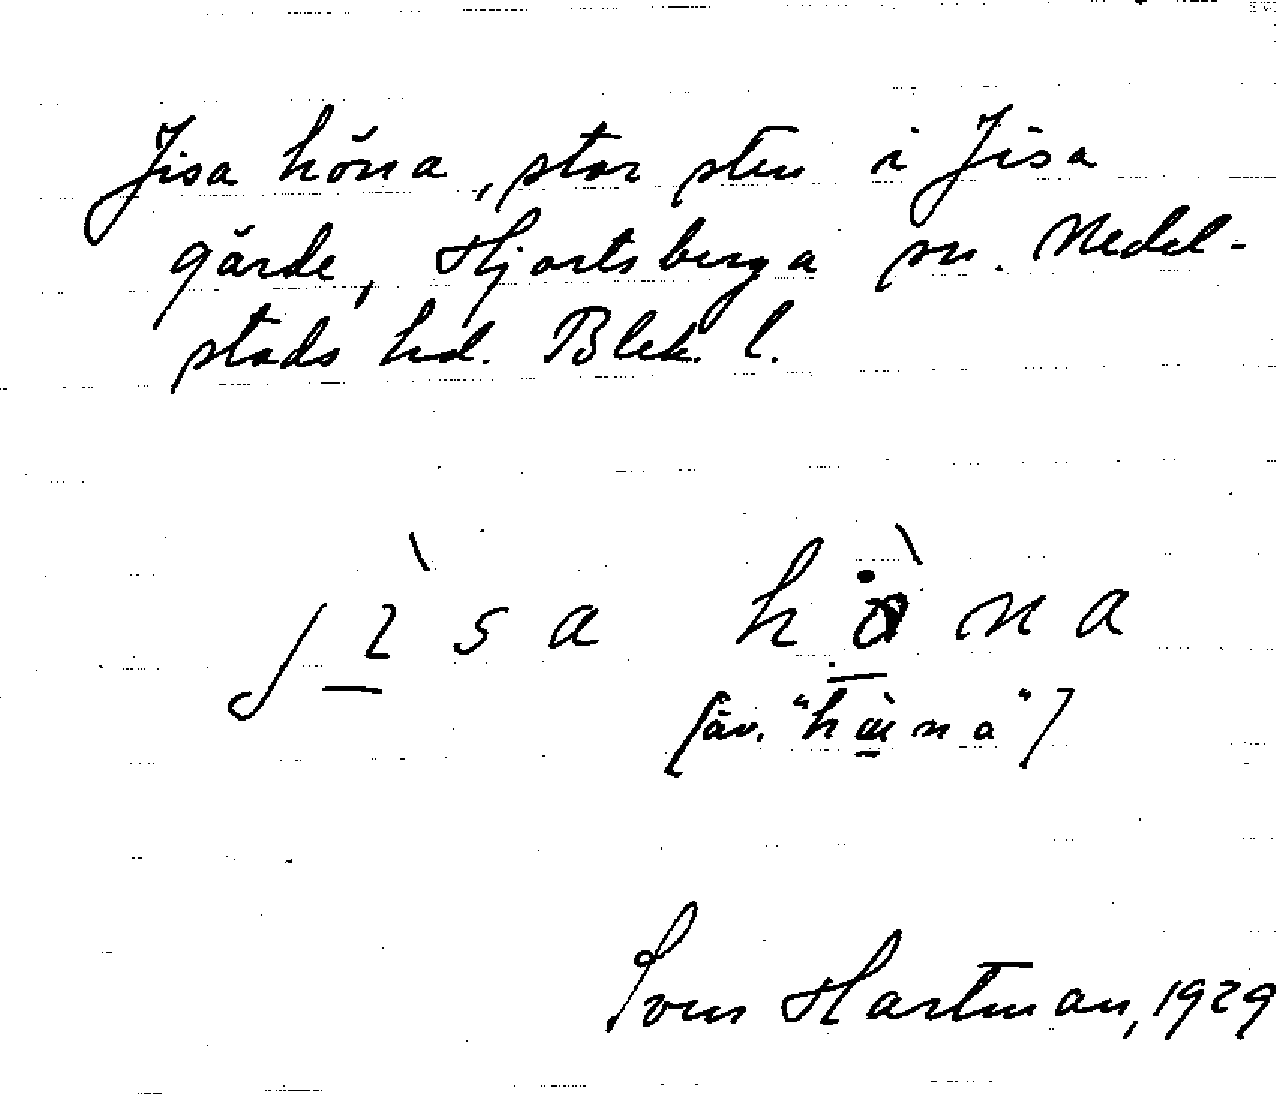 Jisa höna, stor sten i Jisa
gärde, Hjortsberga sn. Medel-
stads hd. Blek. l.
(äv. "hæna")
Sven Hartman, 1929